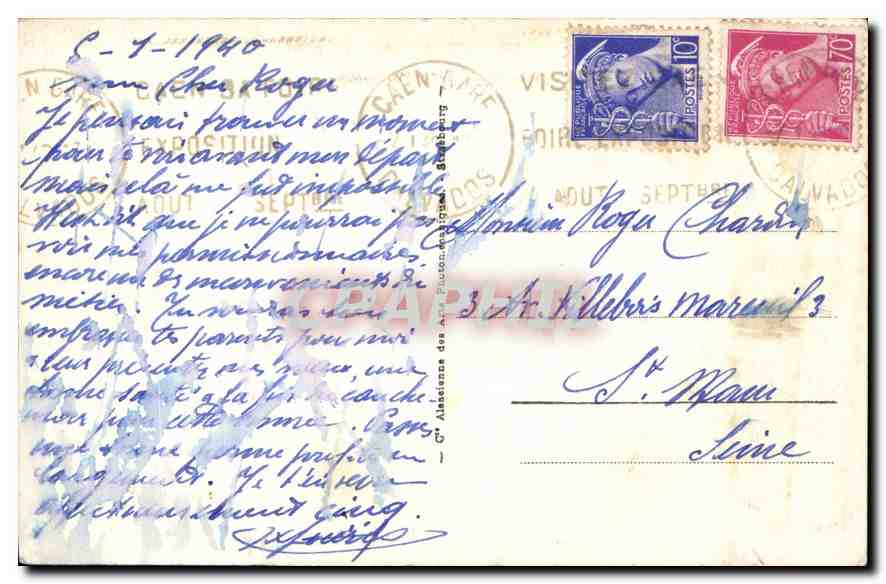 5-1-1940
mon cher Roger
Je pensais trouver un moment
pour te voir avant mon départ
mais celà me fut impossible
que je ne pourrai pas
voir mes permissionnaires
encore un des inconvénients du
métier. Tu voudras bien
embrasser tes parents pour moi
leur présenter mes vœux, une
bonne santé, la fin du cauche-
mar pour cette année. Passe
une bonne perme profite en
largement. Je t'envoie
affectueusement cinq.
Monsieur Roger Chardin
3 Av. Villebois Mareuil 3
St. Maur
Seine
Cie Alsacienne des Arts Photomécaniques - Strasbourg
CAEN GARE
CALVADOS
EXPOSITION
AOUT SEPTbre
CAEN-GARE
CALVADOS
VIS
FOIRE EXPOSITION
AOUT SEPTbre
CALVADOS
REPUBLIQUE FRANCAISE
10c
POSTES
REPUBLIQUE FRANCAISE
70c
POSTES
CPAPHIL